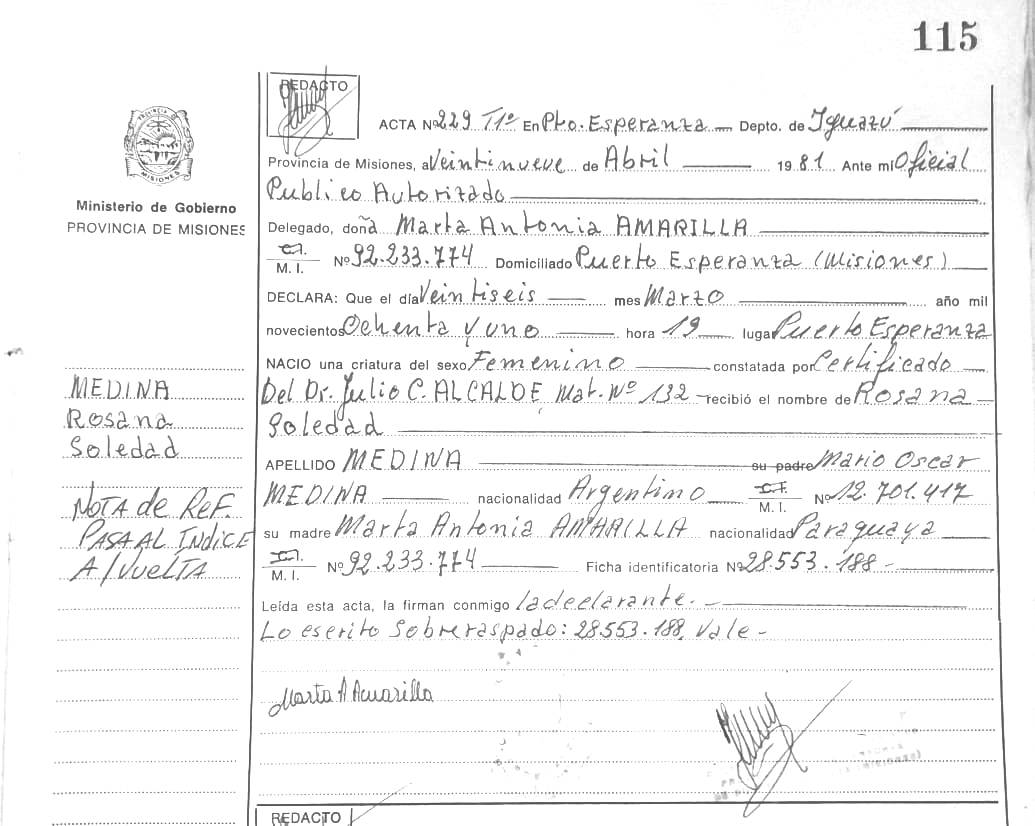 115
REDACTO
PROVINCIA DE
MISIONES
ACTA Nº 229 Tº1º En Pto. Esperanza Depto. de Iguazú
Provincia de Misiones, a Veintinueve de Abril 1981 Ante mi Oficial
Publico Autorizado
Ministerio de Gobierno
PROVINCIA DE MISIONES
Delegado, doña Marta Antonia AMARILLA
C.I.
M. I. Nº 92.233.774 Domiciliado Puerto Esperanza (Misiones)
DECLARA: Que el día Veintiseis mes Marzo año mil
novecientos Ochenta y uno hora 19 lugar Puerto Esperanza
NACIO una criatura del sexo Femenino constatada por Certificado
Del Dr. Julio C. ALCALDE Mat. Nº 132 recibió el nombre de Rosana
Soledad
APELLIDO MEDINA su padre Mario Oscar
MEDINA nacionalidad Argentino C.I.
M. I. Nº 12.701.417
su madre Marta Antonia AMARILLA nacionalidad Paraguaya
C.I.
M. I. Nº 92.233.774 Ficha identificatoria Nº 28.553.188
Leída esta acta, la firman conmigo la declarante.
Lo escrito Sobreraspado: 28.553.188, Vale
Marta A Amarilla
MEDINA
Rosana
Soledad
NOTA de ReF.
PASA AL ÍNDICE
A/VUELTA
REDACTO